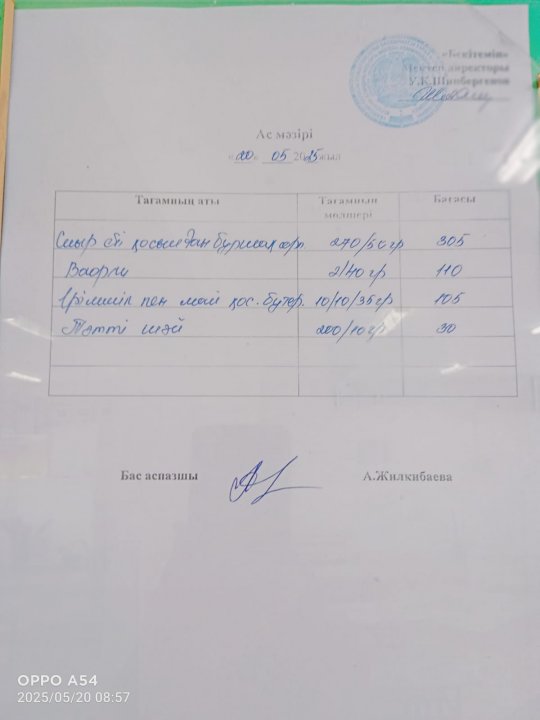 «Бекітемін»
Мектеп директоры
У.К.Шинбергенов
Ас мәзірі
«20» 05 2025 жыл
Тағамның аты Тағамның мөлшері Бағасы
Сиыр еті қосылған бұршақ сорп. 270/50 гр 305
Вафли 2/40 гр 110
Ірімшік пен май қос. бутер. 10/10/35гр 105
Тәтті шәй 200/10 гр 30
Бас аспазшы А.Жилкибаева
OPPO A54
2025/05/20 08:57